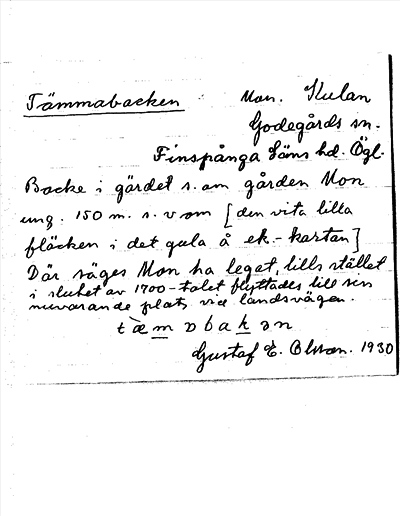 Tämmabacken Mon. Kulan
Godegårds sn.
Finspånga Läns hd. Ögl.
Backe i gärdet s. om gården Mon
ung. 150 m. s. v om [den vita lilla
fläcken i det gula å ek.-kartan]
Där säges Mon ha legat, tills stället
i slutet av 1700-talet flyttades till sin
nuvarande plats vid landsvägen.
Gustaf E. Olsson. 1930